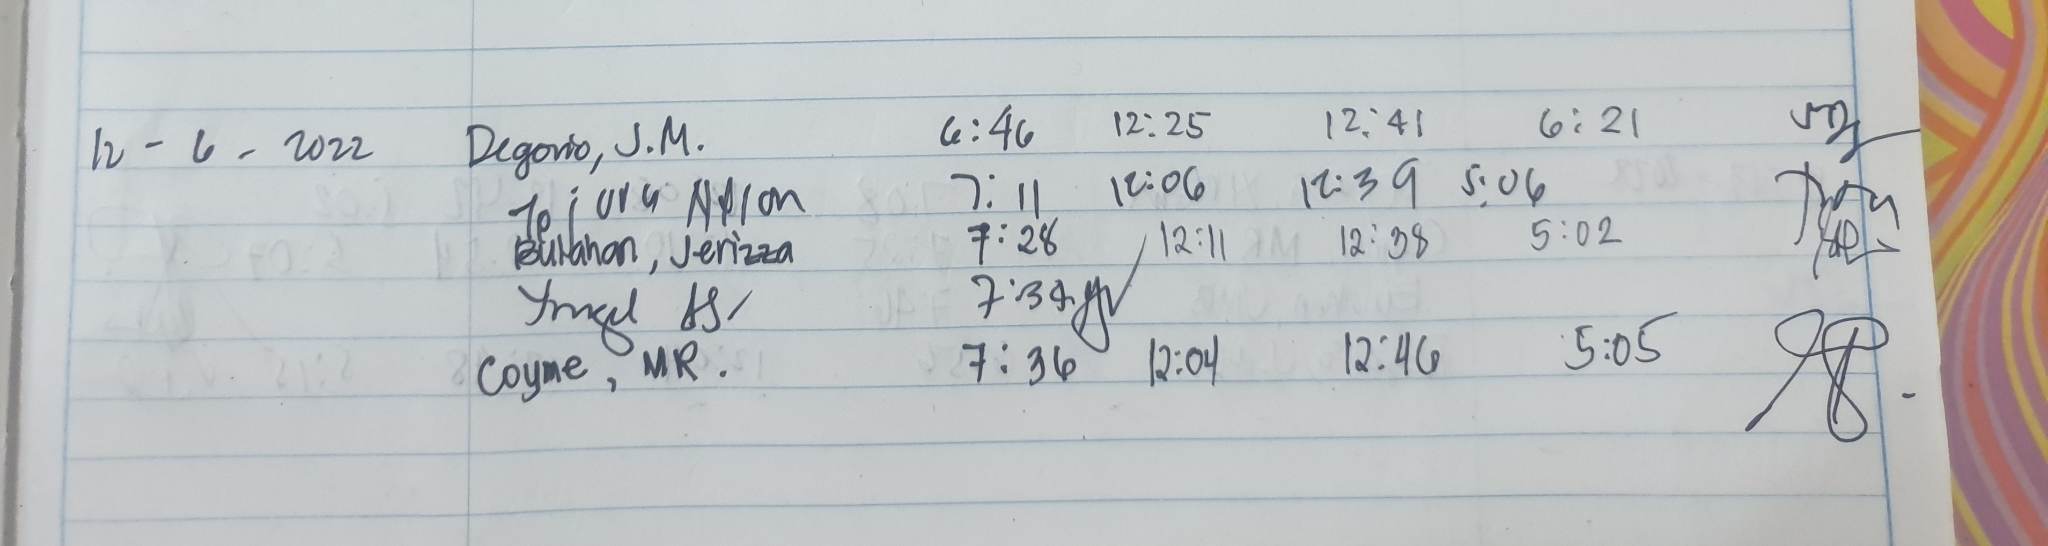 12 - 6 - 2022 Degorio, J.M. 6:46 12:25 12:41 6:21
7:11 12:06 12:39 5:06
Burahan, Jerizza 7:28 12:11 12:38 5:02
7:34
Coyme, MR. 7:36 12:04 12:46 5:05